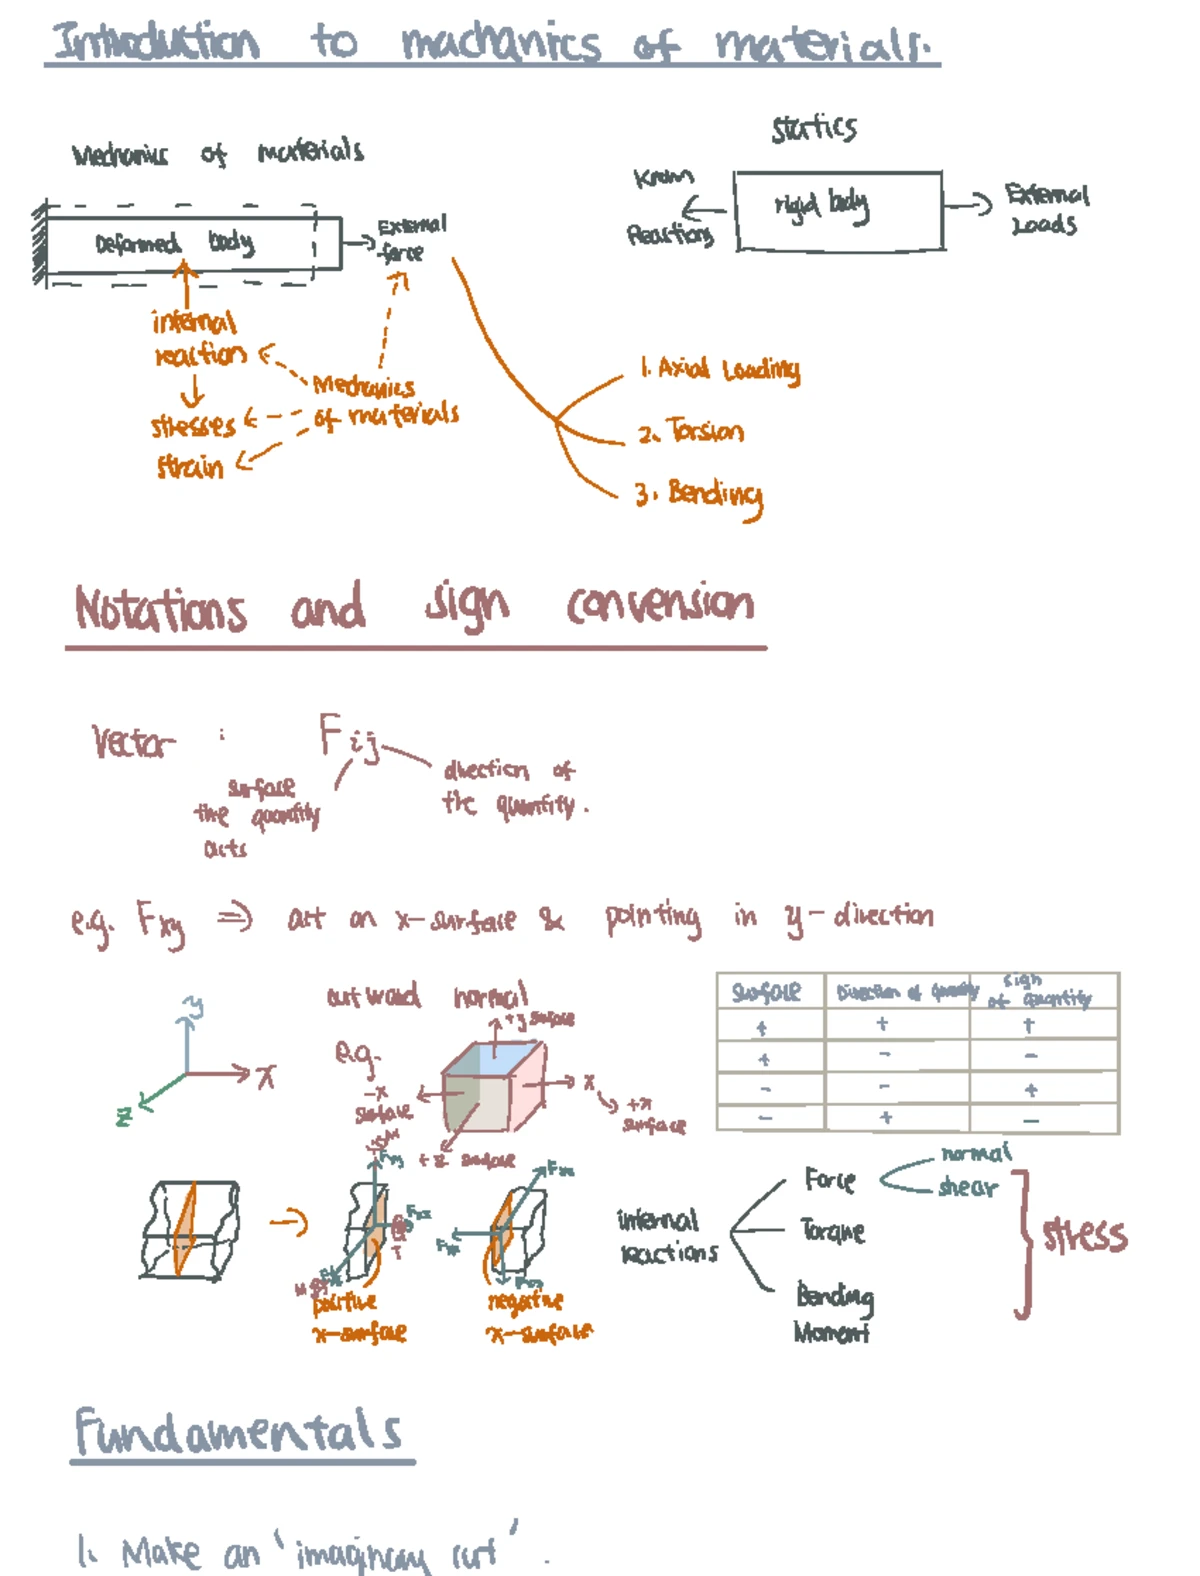 Introduction to machanics of materials.
Mechanics of materials
statics
Deformed body
External
force
Known
Reactions
rigid body
External
Loads
internal
reaction
stresses
strain
Mechanics
of materials
1. Axial Loading
2. Torsion
3. Bending
Notations and sign convension
Vector : Fij
surface
the quantity
acts
direction of
the quantity.
e.g. Fxy => act on x-surface & pointing in y-direction
y
x
z
outward normal
e.g.
+y surface
-x
surface
x
+x
surface
+z surface
Surface Direction of quantity sign of quantity
+ + +
+ - -
- - +
- + -
M
Fxy
Fxx
T
M
positive
x-surface
Fxx
negative
x-surface
internal
reactions
Force
normal
shear
Torque
Bending
Moment
stress
Fundamentals
1. Make an 'imaginary cut'.